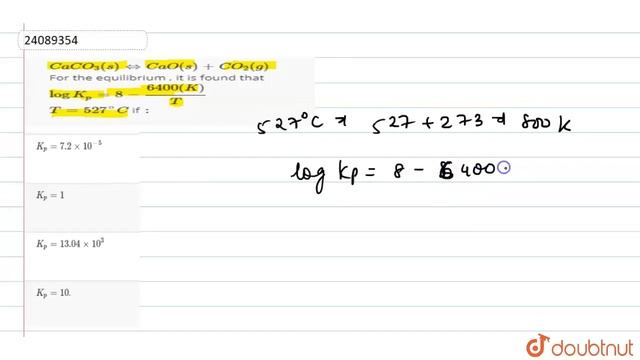 24089354
CaCO₃(s) ⇔ CaO(s) + CO₂(g)
For the equilibrium , it is found that
log Kₚ = 8 − 6400(K)/T
T = 527°C if :
Kₚ = 7.2 × 10⁻⁵
Kₚ = 1
Kₚ = 13.04 × 10³
Kₚ = 10.
527°C ⇒ 527 + 273 ⇒ 800 K
log Kp = 8 − 6400
doubtnut